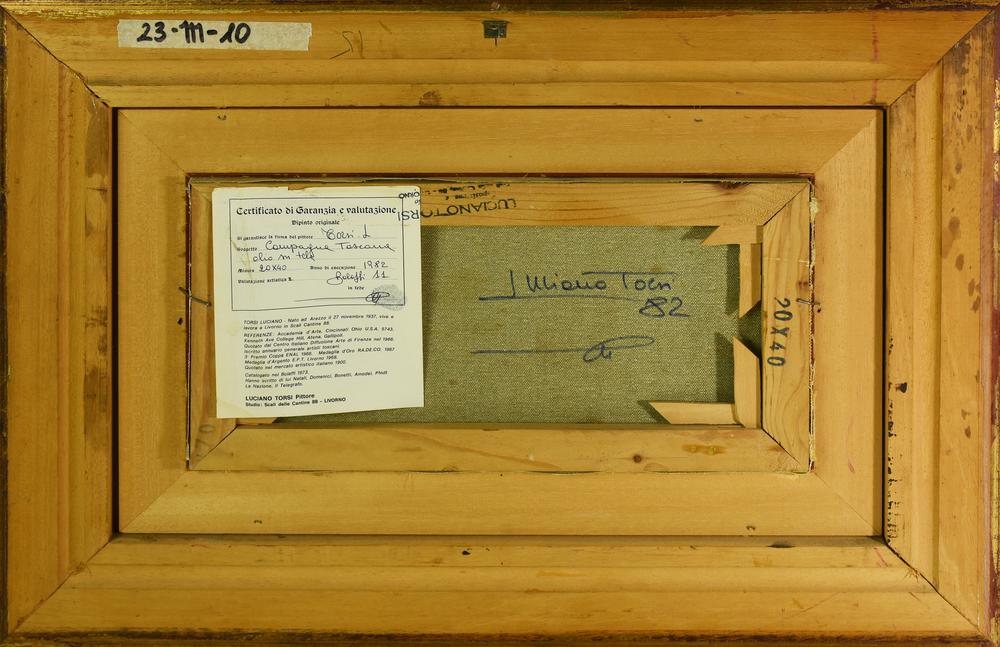 23-M-10
LUCIANO TORSI
Certificato di Garanzia e valutazione
Dipinto originale
Si garantisce la firma del pittore Torsi L
Soggetto Campagna Toscana
olio su tela
Misura 20X40 Anno di esecuzione 1982
Valutazione artistica N. Bolaffi 11
in fede
TORSI LUCIANO - Nato ad Arezzo il 27 novembre 1937, vive e
lavora a Livorno in Scali Cantine 88.
REFERENZE: Accademia d'Arte, Cincinnati Ohio U.S.A. 5743,
Kenneth Ave College Hill, Atene, Gallipoli.
Quotato dal Centro Italiano Diffusione Arte di Firenze nel 1966.
Iscritto annuario generale artisti toscani.
II Premio Coppa ENAL 1966. Medaglia d'Oro RA.DE.CO. 1967
Medaglia d'Argento E.P.T. Livorno 1968.
Quotato nel mercato artistico italiano 1900.
Catalogato nel Bolaffi 1973.
Hanno scritto di lui Natali, Domenici, Bonetti, Amodei,
La Nazione, Il Telegrafo.
LUCIANO TORSI Pittore
Studio: Scali delle Cantine 88 - LIVORNO
Luciano Torsi
82
20X40